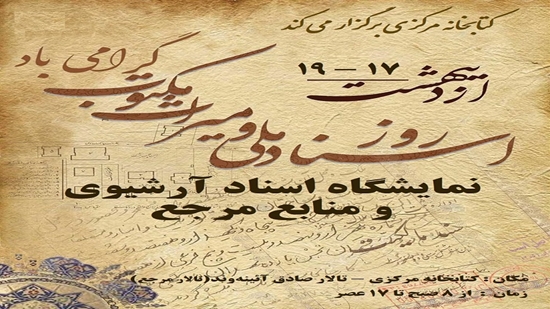 کتابخانه مرکزی برگزار می کند
۱۷ - ۱۹
اردیبهشت
روز
اسناد ملی و میراث مکتوب
گرامی باد
نمایشگاه اسناد آرشیوی
و منابع مرجع
مکان : کتابخانه مرکزی - تالار صادق آئینه‌وند(تالار مرجع)
زمان : از ۸ صبح تا ۱۷ عصر